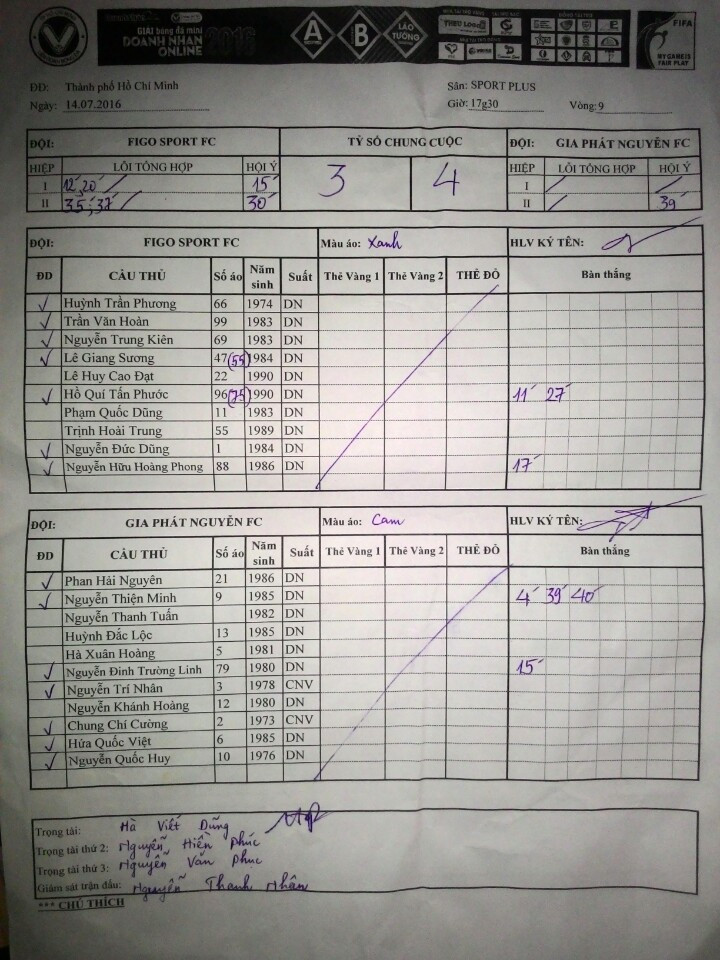 GIẢI bóng đá mini
DOANH NHÂN
ONLINE 2016
A B LÃO TƯỚNG
FIFA
MY GAME IS
FAIR PLAY
ĐĐ: Thành phố Hồ Chí Minh Sân: SPORT PLUS
Ngày: 14.07.2016 Giờ: 17g30 Vòng: 9
ĐỘI: FIGO SPORT FC TỶ SỐ CHUNG CUỘC ĐỘI: GIA PHÁT NGUYỄN FC
HIỆP LỖI TỔNG HỢP HỘI Ý 3 4 HIỆP LỖI TỔNG HỢP HỘI Ý
I 12', 20' 15' I
II 35'; 37' 30' II 39'
ĐỘI: FIGO SPORT FC Màu áo: Xanh HLV KÝ TÊN:
ĐD CẦU THỦ Số áo Năm sinh Suất Thẻ Vàng 1 Thẻ Vàng 2 THẺ ĐỎ Bàn thắng
✓ Huỳnh Trần Phương 66 1974 DN
✓ Trần Văn Hoàn 99 1983 DN
✓ Nguyễn Trung Kiên 69 1983 DN
✓ Lê Giang Sương 47 (55) 1984 DN
Lê Huy Cao Đạt 22 1990 DN
✓ Hồ Quí Tấn Phước 96 (75) 1990 DN 11' 27'
Phạm Quốc Dũng 11 1983 DN
Trịnh Hoài Trung 55 1989 DN
✓ Nguyễn Đức Dũng 1 1984 DN
✓ Nguyễn Hữu Hoàng Phong 88 1986 DN 17'
ĐỘI: GIA PHÁT NGUYỄN FC Màu áo: Cam HLV KÝ TÊN:
ĐD CẦU THỦ Số áo Năm sinh Suất Thẻ Vàng 1 Thẻ Vàng 2 THẺ ĐỎ Bàn thắng
✓ Phan Hải Nguyên 21 1986 DN
✓ Nguyễn Thiện Minh 9 1985 DN 4' 39' 40'
Nguyễn Thanh Tuấn 1982 DN
Huỳnh Đắc Lộc 13 1985 DN
Hà Xuân Hoàng 5 1981 DN
✓ Nguyễn Đình Trường Linh 79 1980 DN 15'
✓ Nguyễn Trí Nhân 3 1978 CNV
Nguyễn Khánh Hoàng 12 1980 DN
✓ Chung Chí Cường 2 1973 CNV
✓ Hứa Quốc Việt 6 1985 DN
✓ Nguyễn Quốc Huy 10 1976 DN
Trọng tài: Hà Viết Dũng
Trọng tài thứ 2: Nguyễn Hiền Phúc
Trọng tài thứ 3: Nguyễn Văn Phúc
Giám sát trận đấu: Nguyễn Thanh Nhân
*** CHÚ THÍCH